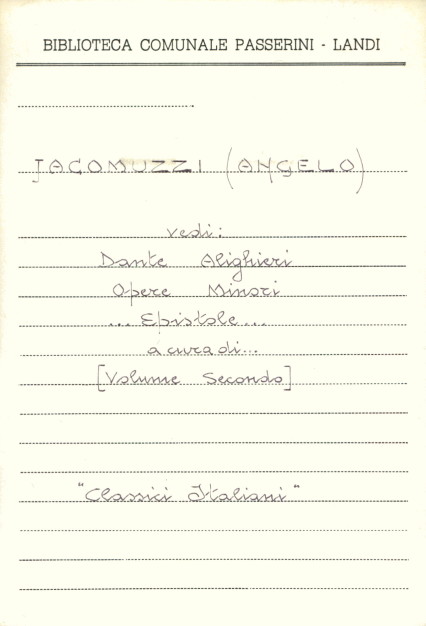 BIBLIOTECA COMUNALE PASSERINI - LANDI
JACOMUZZI (ANGELO)
vedi:
Dante Alighieri
Opere Minori
... Epistole ...
a cura di ...
[Volume Secondo]
"Classici Italiani"